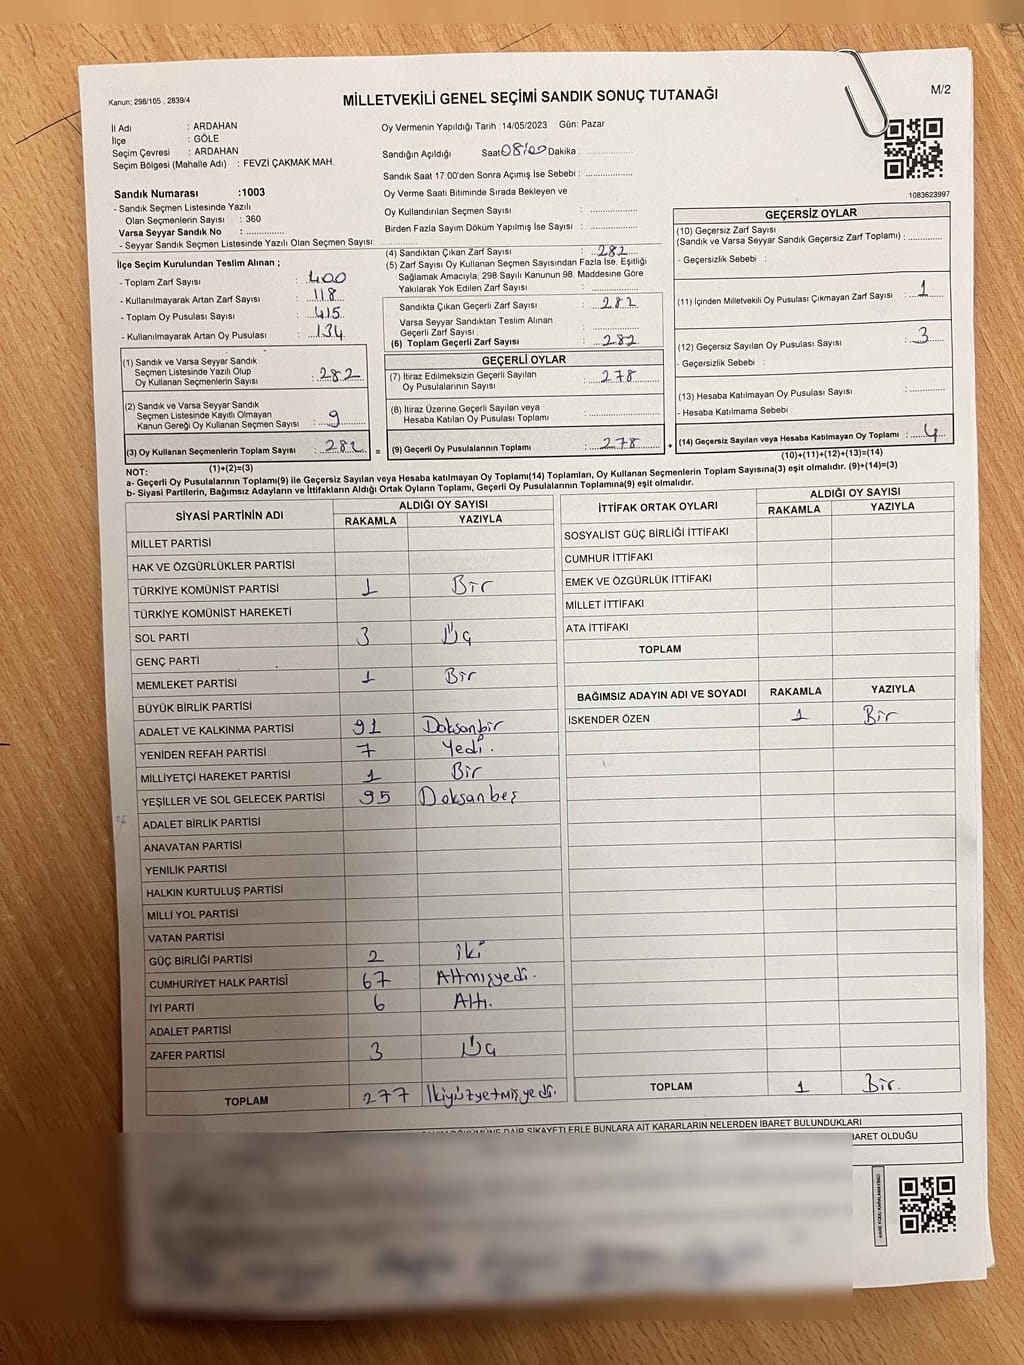 Kanun; 298/105 , 2839/4
MİLLETVEKİLİ GENEL SEÇİMİ SANDIK SONUÇ TUTANAĞI
M/2
İl Adı : ARDAHAN
İlçe : GÖLE
Seçim Çevresi : ARDAHAN
Seçim Bölgesi (Mahalle Adı) : FEVZİ ÇAKMAK MAH.
Sandık Numarası :1003
- Sandık Seçmen Listesinde Yazılı
Olan Seçmenlerin Sayısı : 360
Varsa Seyyar Sandık No : ..............
- Seyyar Sandık Seçmen Listesinde Yazılı Olan Seçmen Sayısı:
Oy Vermenin Yapıldığı Tarih :14/05/2023 Gün: Pazar
Sandığın Açıldığı Saat 08:00 Dakika : ................
Sandık Saat 17:00'den Sonra Açımış İse Sebebi : ................
Oy Verme Saati Bitiminde Sırada Bekleyen ve
Oy Kullandırılan Seçmen Sayısı : ................
Birden Fazla Sayım Döküm Yapılmış İse Sayısı : ................
1083623997
İlçe Seçim Kurulundan Teslim Alınan ;
- Toplam Zarf Sayısı : 400
- Kullanılmayarak Artan Zarf Sayısı : 118
- Toplam Oy Pusulası Sayısı : 415
- Kullanılmayarak Artan Oy Pusulası : 134
(1) Sandık ve Varsa Seyyar Sandık
Seçmen Listesinde Yazılı Olup
Oy Kullanan Seçmenlerin Sayısı : 282
(2) Sandık ve Varsa Seyyar Sandık
Seçmen Listesinde Kayıtlı Olmayan
Kanun Gereği Oy Kullanan Seçmen Sayısı : 9
(3) Oy Kullanan Seçmenlerin Toplam Sayısı : 282
(1)+(2)=(3)
(4) Sandıktan Çıkan Zarf Sayısı : 282
(5) Zarf Sayısı Oy Kullanan Seçmen Sayısından Fazla İse, Eşitliği
Sağlamak Amacıyla; 298 Sayılı Kanunun 98. Maddesine Göre
Yakılarak Yok Edilen Zarf Sayısı : ................
Sandıkta Çıkan Geçerli Zarf Sayısı : 282
Varsa Seyyar Sandıktan Teslim Alınan
Geçerli Zarf Sayısı : ................
(6) Toplam Geçerli Zarf Sayısı : 282
GEÇERLİ OYLAR
(7) İtiraz Edilmeksizin Geçerli Sayılan
Oy Pusulalarının Sayısı : 278
(8) İtiraz Üzerine Geçerli Sayılan veya
Hesaba Katılan Oy Pusulası Toplamı : ................
= (9) Geçerli Oy Pusulalarının Toplamı : 278 +
GEÇERSİZ OYLAR
(10) Geçersiz Zarf Sayısı
(Sandık ve Varsa Seyyar Sandık Geçersiz Zarf Toplamı) : ............
- Geçersizlik Sebebi :
(11) İçinden Milletvekili Oy Pusulası Çıkmayan Zarf Sayısı : 1
(12) Geçersiz Sayılan Oy Pusulası Sayısı : 3
- Geçersizlik Sebebi :
(13) Hesaba Katılmayan Oy Pusulası Sayısı : ............
- Hesaba Katılmama Sebebi :
(14) Geçersiz Sayılan veya Hesaba Katılmayan Oy Toplamı : 4
(10)+(11)+(12)+(13)=(14)
NOT:
a- Geçerli Oy Pusulalarının Toplamı(9) ile Geçersiz Sayılan veya Hesaba katılmayan Oy Toplamı(14) Toplamları, Oy Kullanan Seçmenlerin Toplam Sayısına(3) eşit olmalıdır. (9)+(14)=(3)
b- Siyasi Partilerin, Bağımsız Adayların ve İttifakların Aldığı Ortak Oyların Toplamı, Geçerli Oy Pusulalarının Toplamına(9) eşit olmalıdır.
SİYASİ PARTİNİN ADI ALDIĞI OY SAYISI
RAKAMLA YAZIYLA
MİLLET PARTİSİ
HAK VE ÖZGÜRLÜKLER PARTİSİ
TÜRKİYE KOMÜNİST PARTİSİ 1 Bir
TÜRKİYE KOMÜNİST HAREKETİ
SOL PARTİ 3 Üç
GENÇ PARTİ
MEMLEKET PARTİSİ 1 Bir
BÜYÜK BİRLİK PARTİSİ
ADALET VE KALKINMA PARTİSİ 91 Doksanbir
YENİDEN REFAH PARTİSİ 7 Yedi.
MİLLİYETÇİ HAREKET PARTİSİ 1 Bir
YEŞİLLER VE SOL GELECEK PARTİSİ 95 Doksanbeş
ADALET BİRLİK PARTİSİ
ANAVATAN PARTİSİ
YENİLİK PARTİSİ
HALKIN KURTULUŞ PARTİSİ
MİLLİ YOL PARTİSİ
VATAN PARTİSİ
GÜÇ BİRLİĞİ PARTİSİ 2 iki
CUMHURİYET HALK PARTİSİ 67 Altmışyedi.
İYİ PARTİ 6 Altı.
ADALET PARTİSİ
ZAFER PARTİSİ 3 Üç
TOPLAM 277 İkiyüzyetmişyedi.
İTTİFAK ORTAK OYLARI ALDIĞI OY SAYISI
RAKAMLA YAZIYLA
SOSYALİST GÜÇ BİRLİĞİ İTTİFAKI
CUMHUR İTTİFAKI
EMEK VE ÖZGÜRLÜK İTTİFAKI
MİLLET İTTİFAKI
ATA İTTİFAKI
TOPLAM
BAĞIMSIZ ADAYIN ADI VE SOYADI RAKAMLA YAZIYLA
İSKENDER ÖZEN 1 Bir
TOPLAM 1 Bir.
DÖKÜMÜNE DAİR ŞİKAYETLERLE BUNLARA AİT KARARLARIN NELERDEN İBARET BULUNDUKLARI
İBARET OLDUĞU